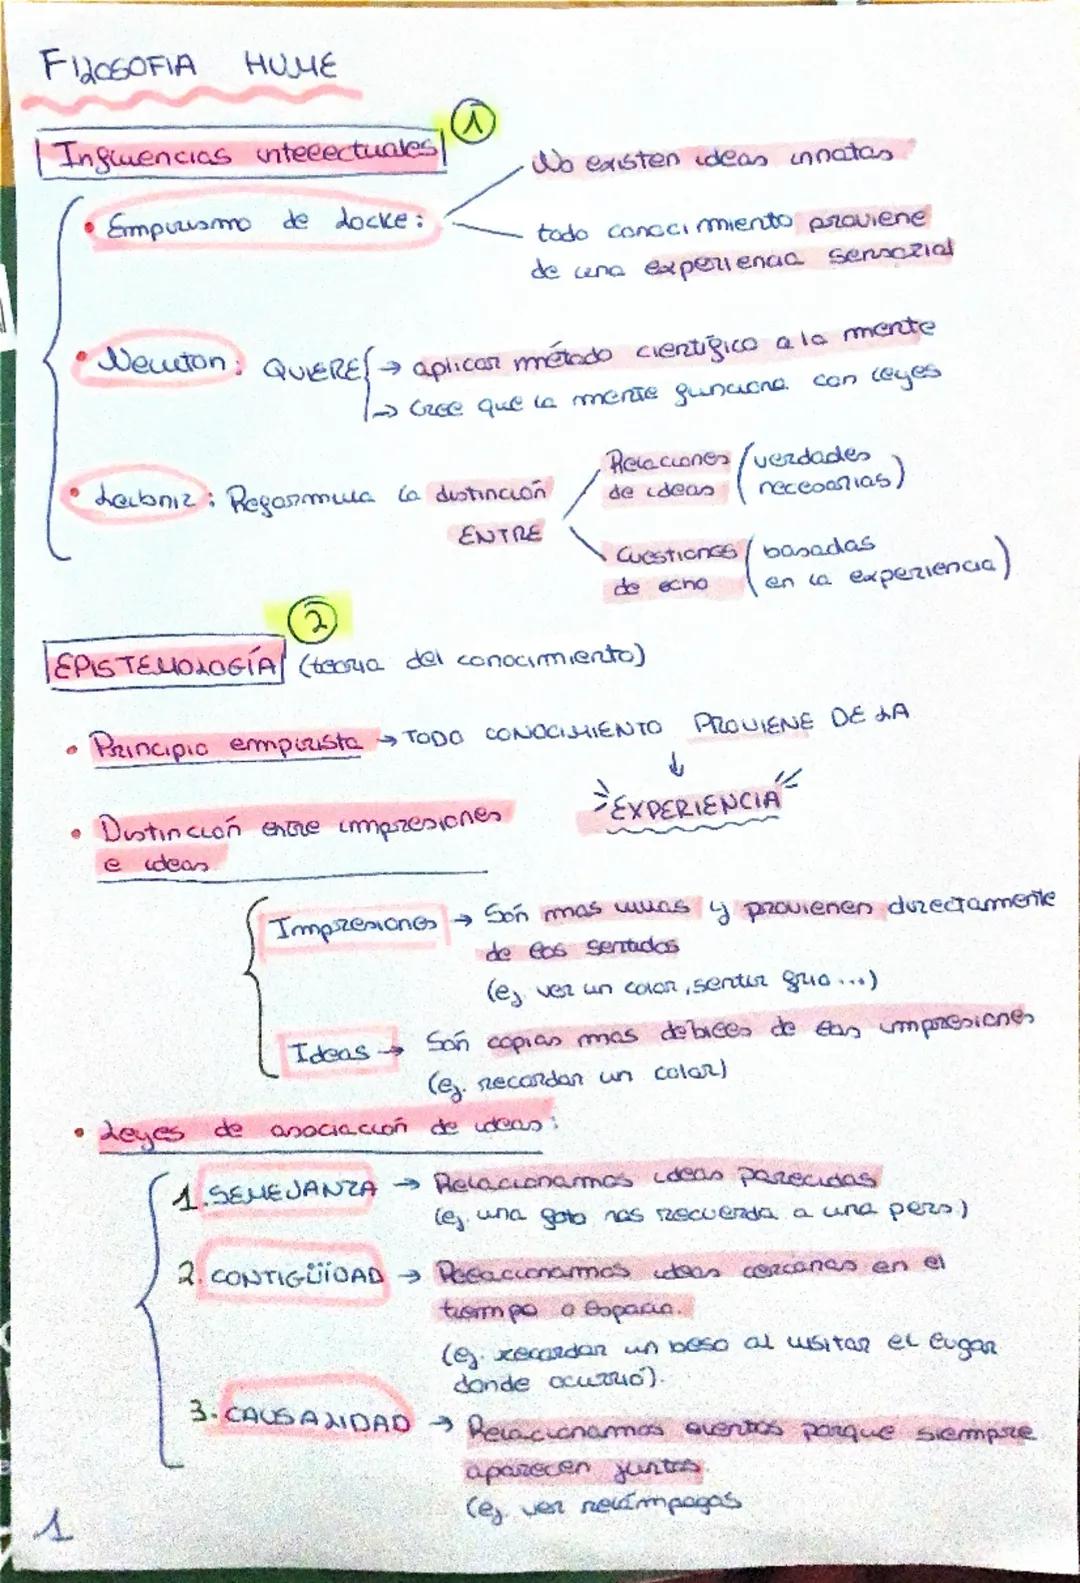 FILOSOFIA HUME
1
Influencias intelectuales
• Empirismo de Locke:
No existen ideas innatas
todo conocimiento proviene
de una experiencia sensorial
• Newton: QUIERE → aplicar método científico a la mente
→ Cree que la mente funciona con leyes
• Leibniz: Reformula la distinción
ENTRE
Relaciones (verdades
de ideas necesarias)
Cuestiones (basadas
de echo en la experiencia)
2
EPISTEMOLOGÍA (teoria del conocimiento)
• Principio empirista → TODO CONOCIMIENTO PROVIENE DE LA
↓
EXPERIENCIA
• Distinción entre impresiones
e ideas
Impresiones → Són mas vivas y provienen directamente
de los sentidos
(ej ver un color, sentir frio...)
Ideas → Són copias mas debiles de las impresiones
(ej. recordar un color)
• Leyes de asociación de ideas:
1. SEMEJANZA → Relacionamos ideas parecidas
(ej. una foto nos recuerda a una pers)
2. CONTIGÜÏDAD → Relacionamos ideas cercanas en el
tiempo o Espacio.
(ej. recordar un beso al visitar el lugar
donde ocurrió).
3. CAUSALIDAD → Relacionamos eventos porque siempre
aparecen juntos.
(ej. ver relámpagos
1